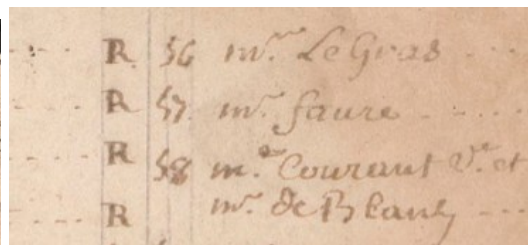 R. 56 mr. LeGras
R 57. mr. faure
R 58 me. Courant Ve. et
R mr. de Blanzy